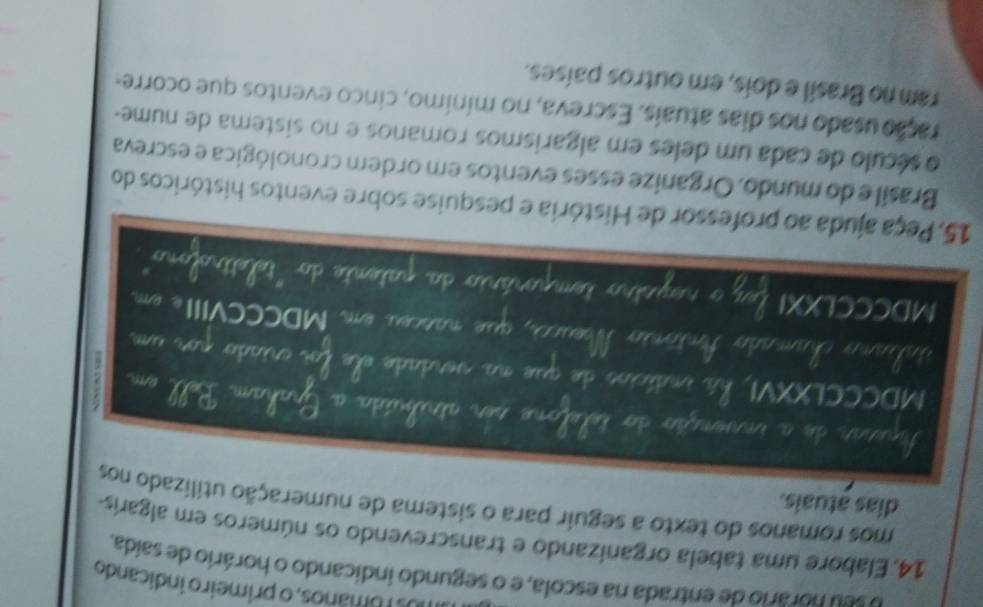 algarismos romanos, o primeiro indicando
o seu horário de entrada na escola, e o segundo indicando o horário de saída.
14. Elabore uma tabela organizando e transcrevendo os números em algaris-
mos romanos do texto a seguir para o sistema de numeração utilizado nos
dias atuais.
Apesar de a invenção do telefone ser atribuída a Graham Bell em
MDCCCLXXVI, há indícios de que na verdade ele foi criado por um
italiano chamado Antonio Meucci, que nasceu em MDCCCVIII e em
MDCCCLXXI fez o registro temporário da patente do "teletrofono".
15. Peça ajuda ao professor de História e pesquise sobre eventos históricos do
Brasil e do mundo. Organize esses eventos em ordem cronológica e escreva
o século de cada um deles em algarismos romanos e no sistema de nume-
ração usado nos dias atuais. Escreva, no mínimo, cinco eventos que ocorre-
ram no Brasil e dois, em outros países.